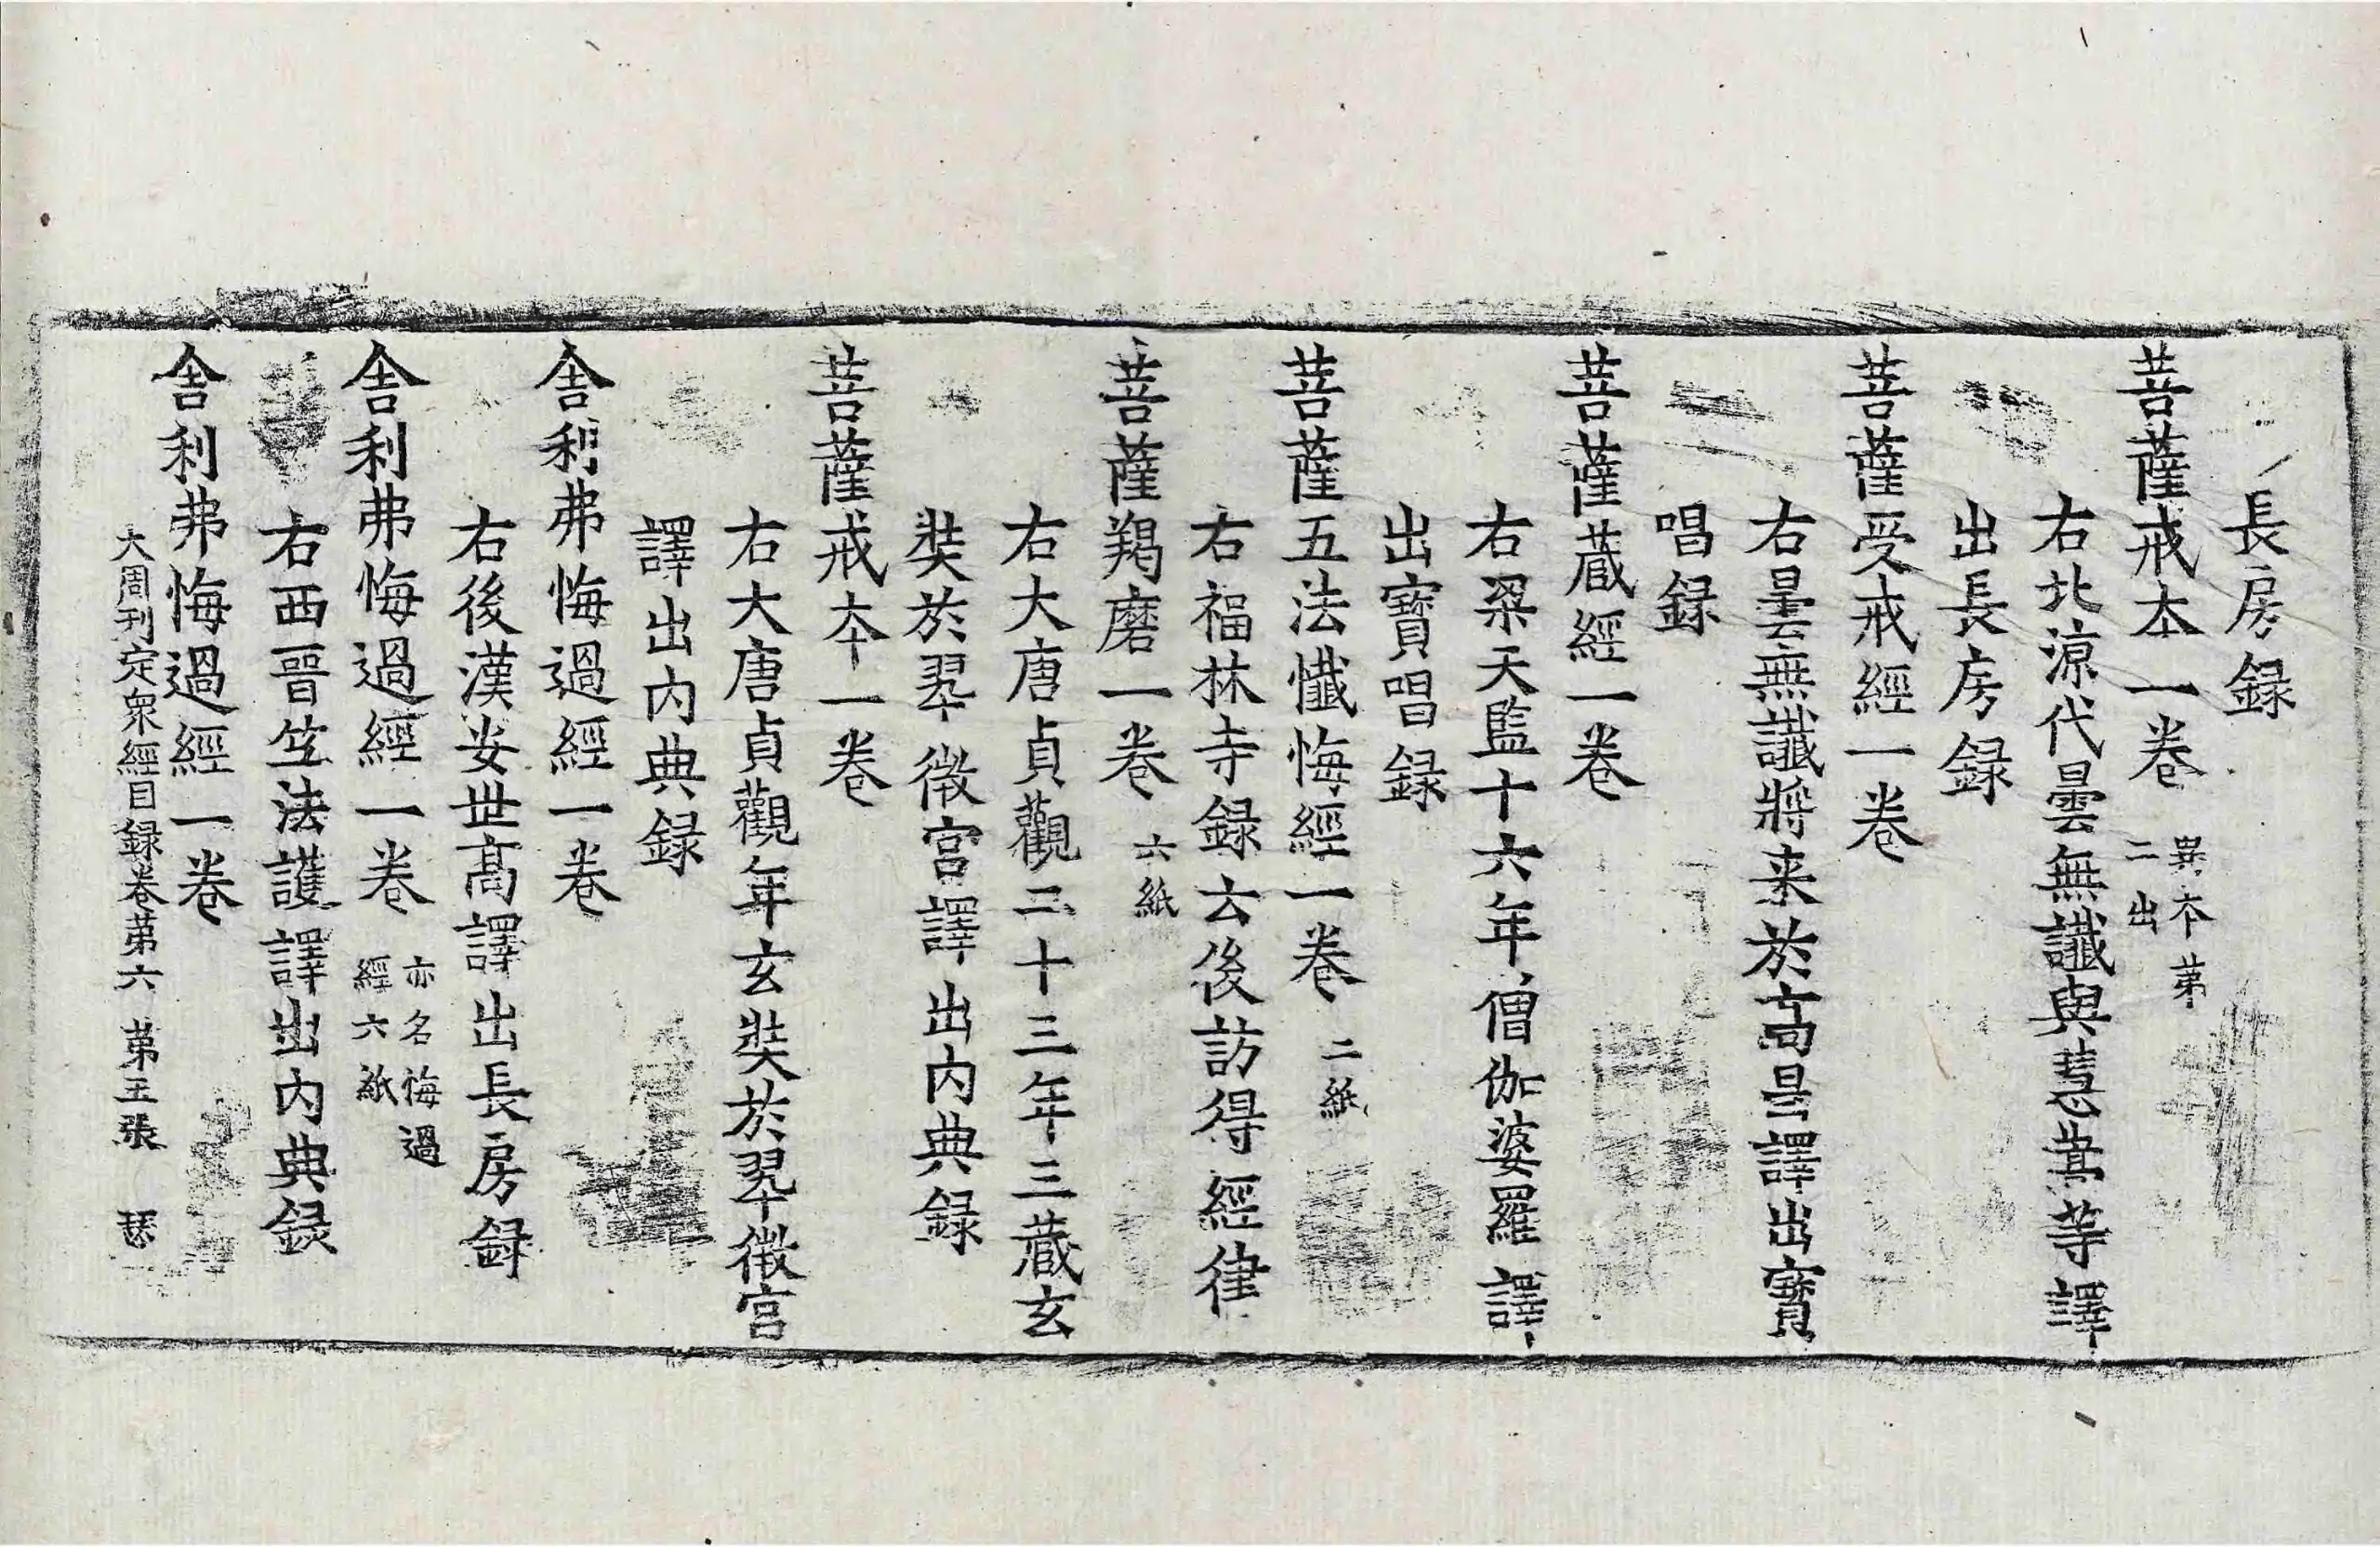 長房録
菩薩戒本一卷 異本第二出
右北涼代曇無讖與慧嵩等譯
出長房録
菩薩受戒經一卷
右曇無讖將来於高昌譯出寳
唱録
菩薩蔵經一卷
右梁天監十六年僧伽婆羅譯
出寳唱録
菩薩五法懺悔經一卷 二紙
右福林寺録云後訪得經律
菩薩羯磨一卷 六紙
右大唐貞觀二十三年三蔵玄
奘於翠微宫譯出内典録
菩薩戒本一卷
右大唐貞觀年玄奘於翠微宫
譯出内典録
舎利弗悔過經一卷
右後漢安世髙譯出長房録
舎利弗悔過經一卷 亦名悔過經六紙
右西晉竺法護譯出内典録
舎利弗悔過經一卷
大周刊定衆經目録卷第六 第五張